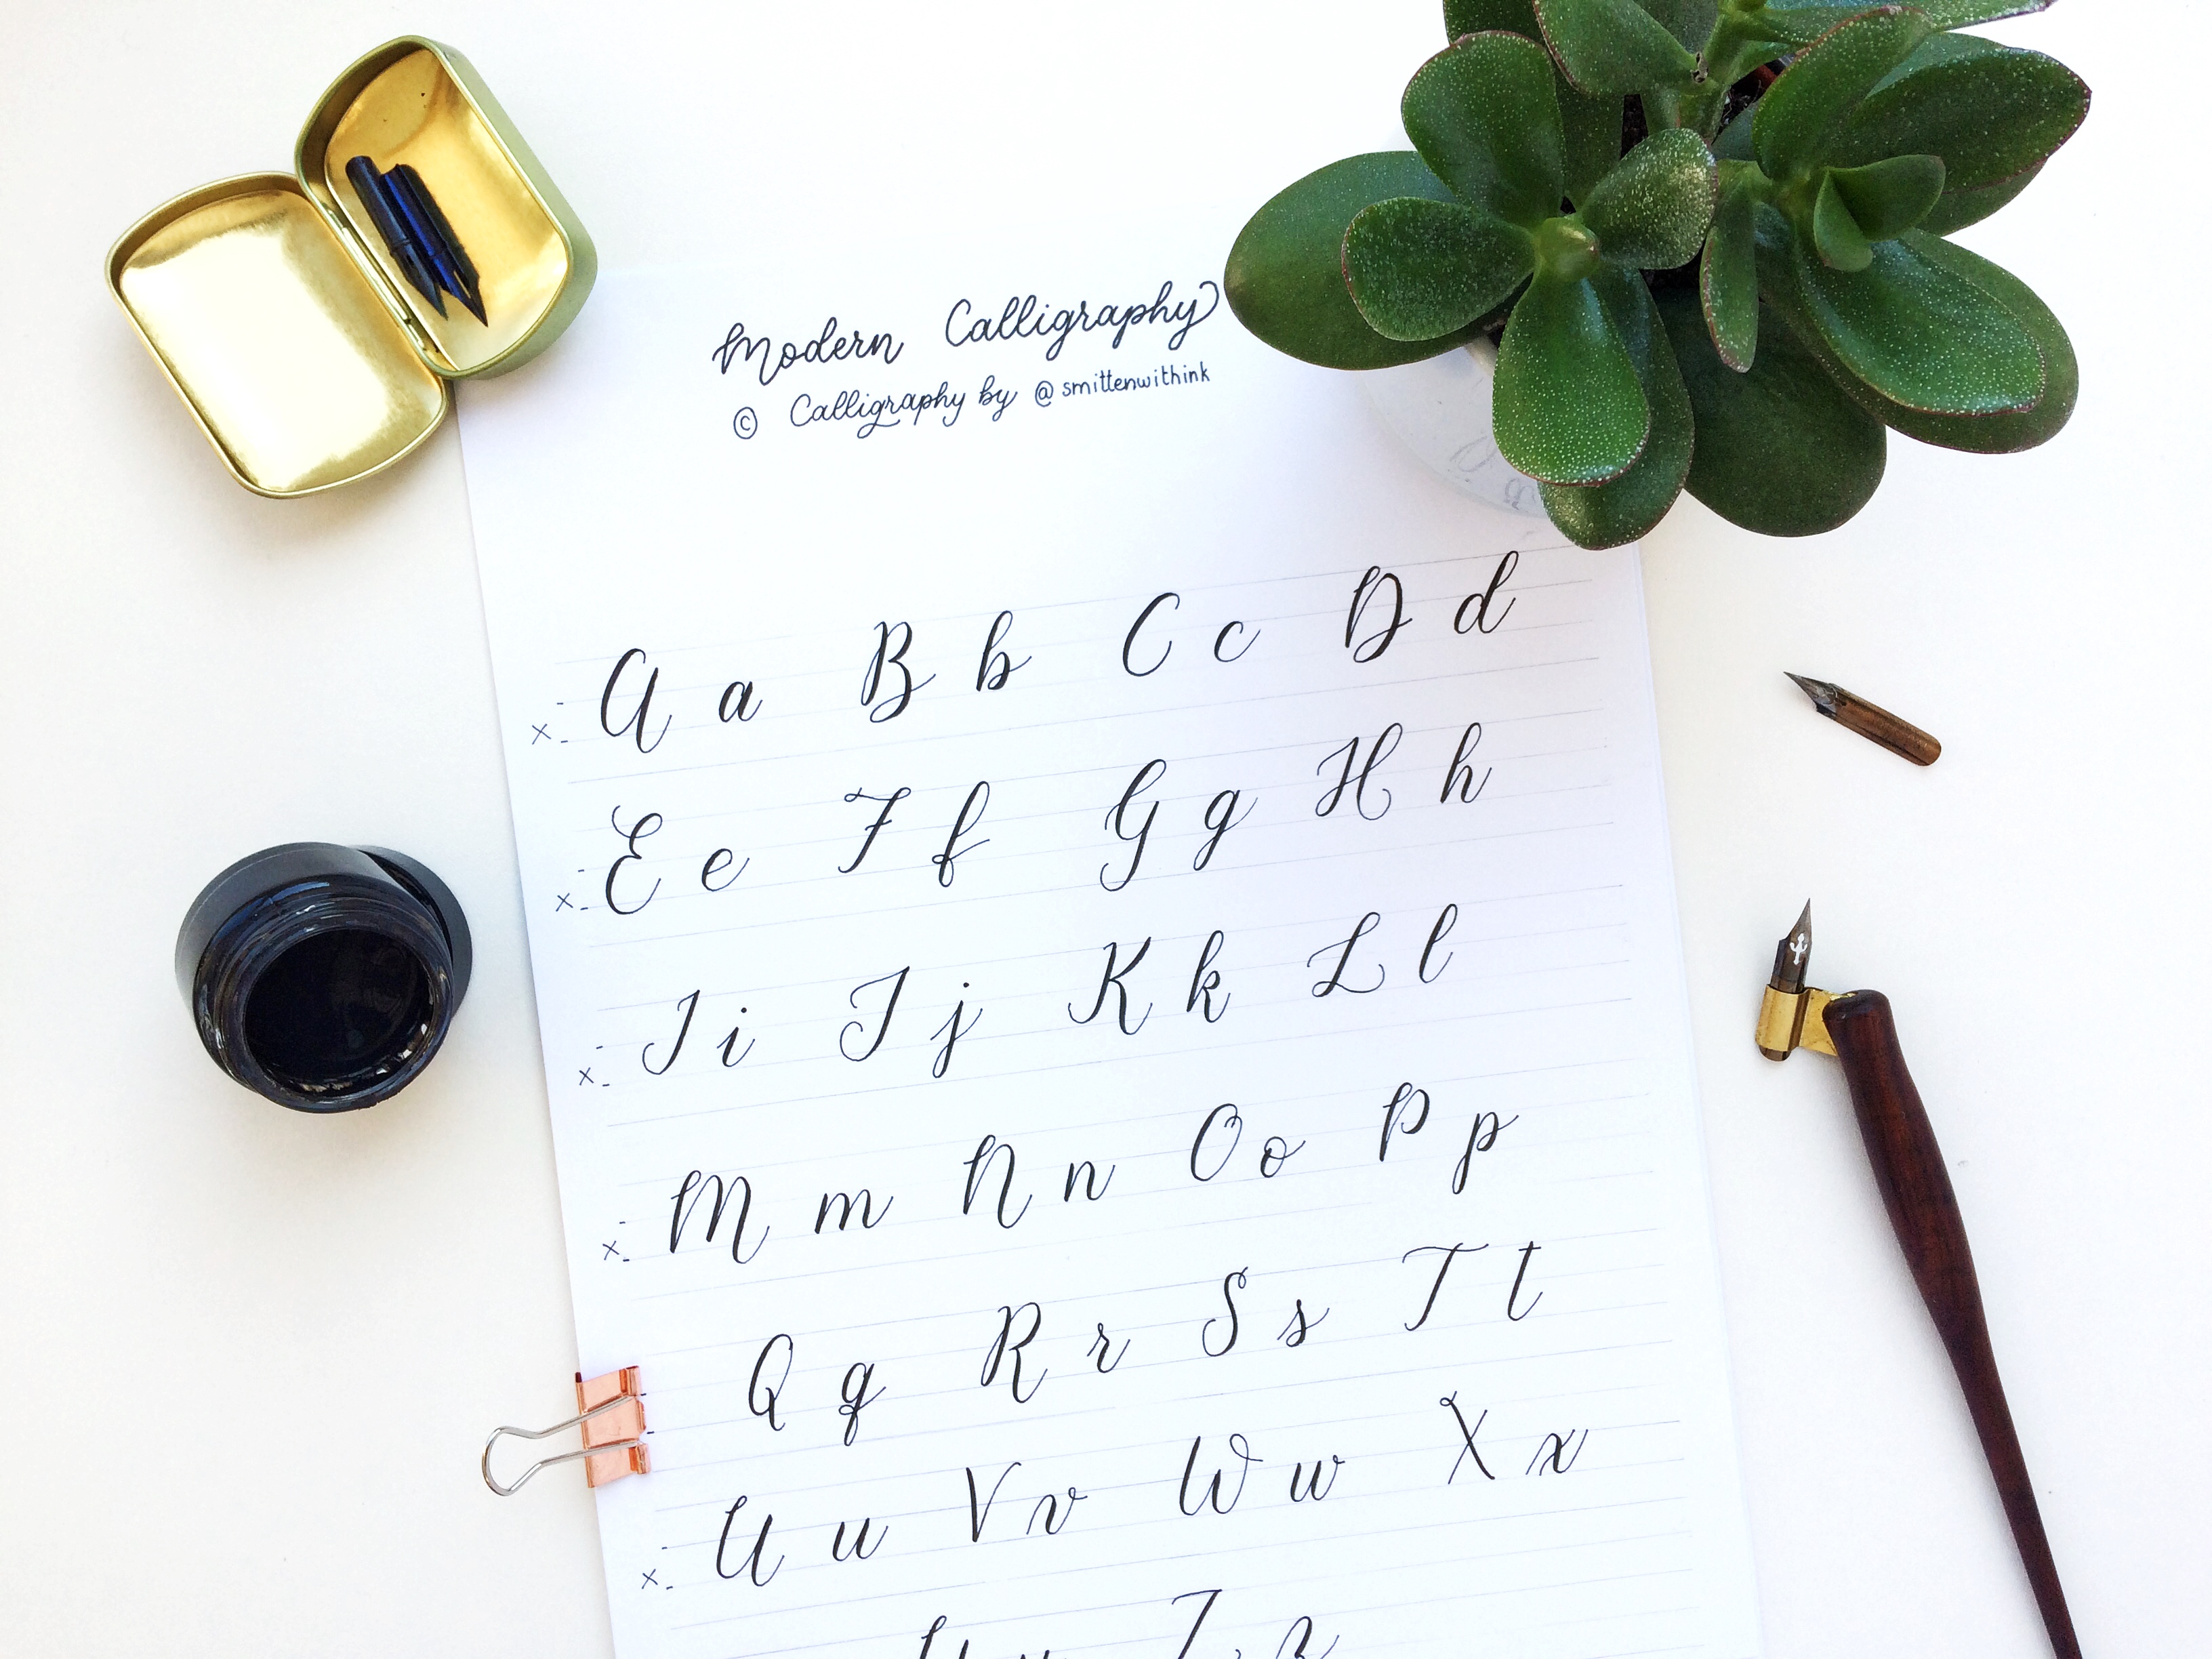 Modern Calligraphy
© Calligraphy by @smittenwithink
A a B b C c D d
x
E e F f G g H h
x
I i J j K k L l
x
M m N n O o P p
x
Q q R r S s T t
U u V v W w X x
x
Y y Z z